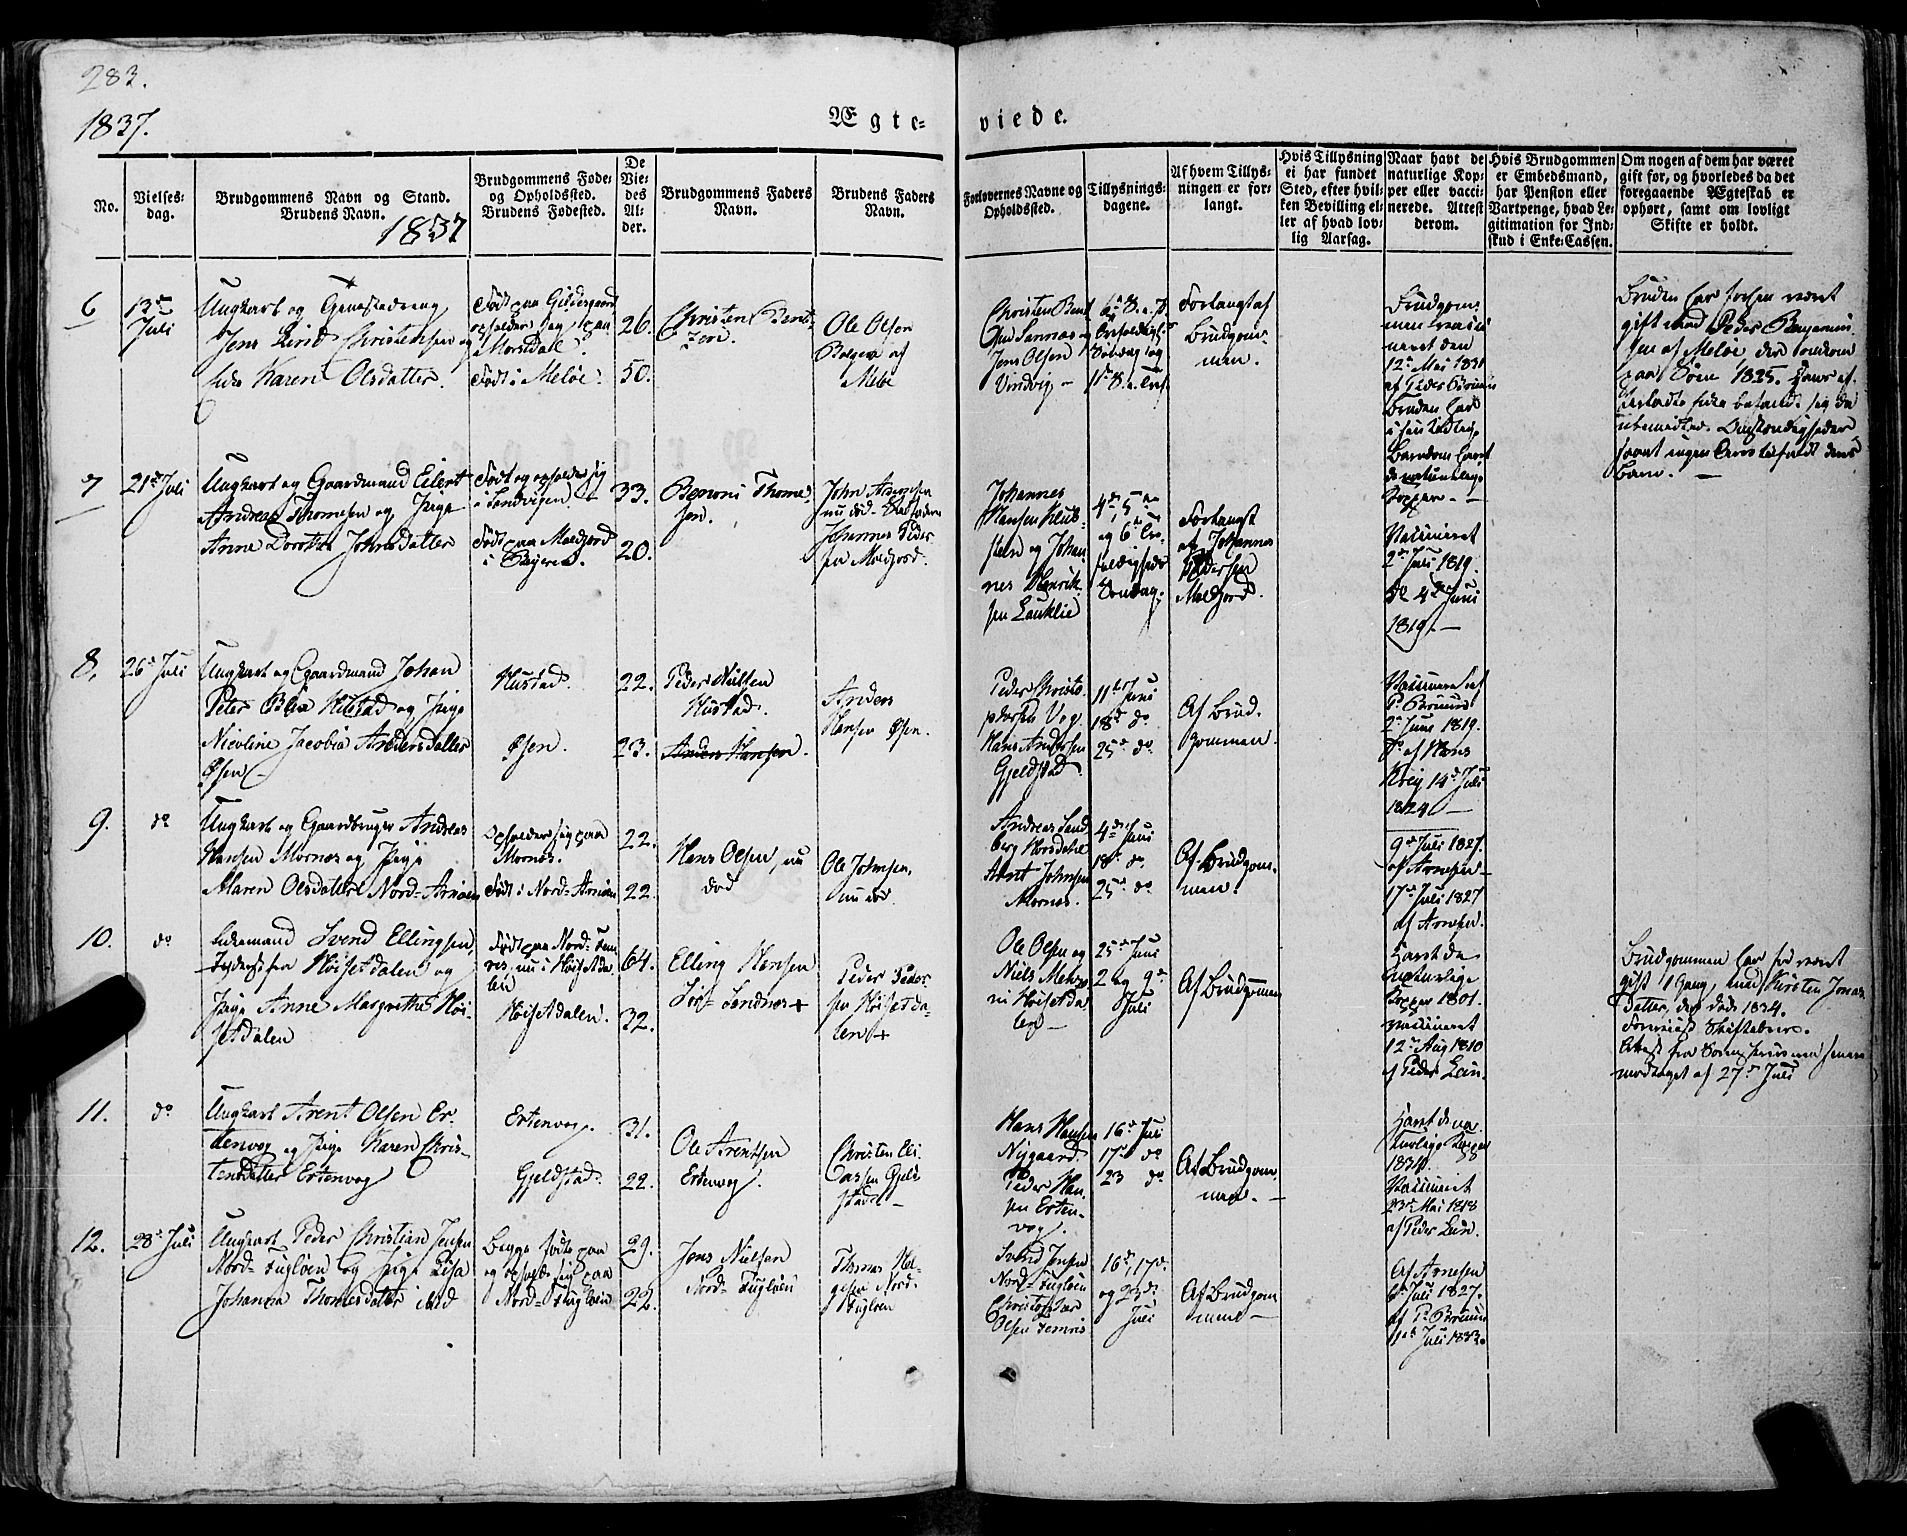 283.
1837.
Ægte-
viede.
No.
Vielses-
dag.
Brudgommens Navn og Stand.
Brudens Navn.
1837
Brudgommens Føde-
og Opholdssted.
Brudens Fødested.
De
Vie-
des
Al-
der.
Brudgommens Faders
Navn.
Brudens Faders
Navn.
Forlovernes Navne og
Opholdssted.
Tillysnings-
dagene.
Af hvem Tillys-
ningen er for-
langt.
Hvis Tillysning
ei har fundet
Sted, efter hvil-
ken Bevilling el-
ler af hvad lov-
lig Aarsag.
Naar havt de
naturlige Kop-
per eller vacci-
nerede. Attest
derom.
Hvis Brudgommen
er Embedsmand,
har Pension eller
Vartpenge, hvad Le-
gitimation for Ind-
skud i Enke-Cassen.
Om nogen af dem har været
gift før, og hvorledes da det
foregaaende Ægteskab er
ophørt, samt om lovligt
Skifte er holdt.
6
13de
Juli
Ungkarl og
Jens Lind Christensen og
Enke Karen Olsdatter.
Født paa
opholder sig paa
Født i Meløe.
26.
50.
Christen Bent-
sen.
Ole Olsen
Bolgen af
Meløe
Christen Bent
Jens Olsen
Vindvig
Forlangt af
Brudgom-
men.
Brudgom-
men vacci
neret den
12te Mai 1831
af Peder Bruun
Bruden havt
i sin
Barndom havt
de naturlige
Kopper.
Bruden har forhen været
gift med Peder Benjamin
sen af Meløe der omkom
paa Søen 1825.
7
21de Juli
Ungkarl og Gaardmand Eilert
Andreas Thomesen og Pige
Anne Dorthea Johnsdatter
Født og opholder sig
i Sandvigen
Født paa Moldjord
i Bejeren.
33.
20.
Benoni Thome-
sen.
John Arnesen
nu død
Johannes Peder
sen Moldjord.
Johannes
Hansen
og Johan
nes Henrik
sen Lauklie
4de, 5te
og 6te
Søndag.
Forlangt
af Johannes
Pedersen
Moldjord.
Vaccineret
2den Juli 1819.
do 4de Juni
1819.
8.
26de Juli
Ungkarl og Gaardmand Johan
Peter Hustad og Pige
Nicoline Jacobia Andersdatter
Øsen
Hustad.
Øsen.
22.
23.
Peder Nilsen
Hustad.
Anders Hansen.
Anders
Hansen Øsen.
Peder Christo
phersen Vog
Hans Andersen
Gjeldstad.
11te Juni
18de do
25de do
Af Brud-
gommen.
Vaccineret af
P. Bruun
2den Juni 1819.
do af Mons
14de Juli
1824
9.
do
Ungkarl og Gaardbruger Andreas
Hansen Mornes og Pige
Maren Olsdatter Nord-Arnøen
Opholder sig paa
Mornes.
Født i Nord-Arnøen
22.
22.
Hans Olsen, nu
død
Ole Johnsen,
nu død.
Andreas Sand
berg Horsdahl
Arnt Johnsen
Mornes.
4de Juni
18de do
25de do
Af Brudgom-
men.
9de Juli 1827.
af Arnesen
17de Juli 1827
af Arnesen.
10.
do
Enkemand Svend Ellingsen,
Høisetdalen og
Pige Anne Margrethe Høi-
setdalen
Født paa Nord-Fem
ris, nu i Høisetda-
len
Høisetdalen.
64.
32.
Elling Hansen
Sør-Sandnes +
Peder Peder-
sen Høisetda-
len +
Ole Olsen og
Niels
ni Høisetda-
len
25de Juni
2 og 9de
Juli
Af Brudgommen
Havt de
naturlige
Kopper 1801.
Vaccineret
12te Aug 1810
af Peder Lein.
Brudgommen har før været
gift 1 Gang, med Kirsten Jonas
datter, der døde 1834.
Attest fra Sorenskriveren
modtaget af 27de Juli
11.
do
Ungkarl Arent Olsen Er-
tenvog og Pige Karen Chris-
tensdatter Ertenvog
Ertenvog.
Gjeldstad.
31.
22.
Ole Arentsen
Ertenvog.
Christen Eli-
assen Gjeld
stad
Hans Hansen
Nygaard
Peder Han-
sen Erten-
vog.
16de Juli
17de do
23 do
Af Brudgom
men.
Havt de na-
turlige Kopper
Vaccineret
23de Mai 1818
af Peder Lein.
12.
28de Juli
Ungkarl Peder Christian Jensen
Nord-Fugløen og Pige Lisa
Johanna Thomesdatter ibid
Begge fødte paa
og opholde sig paa
Nord-Fugløen
29.
22.
Jens Nielsen
Nord-Fugløen
Thomes Hel-
gesen Nord-
Fugløen
Svend Jensen
Nord-Fugløen
Christopher
Olsen Femris
16de, 17de
og 23de
Juli
Af Brudgom
men
Af Arnesen
6te Juli 1827.
af P. Bruun
11te Juli 1833.